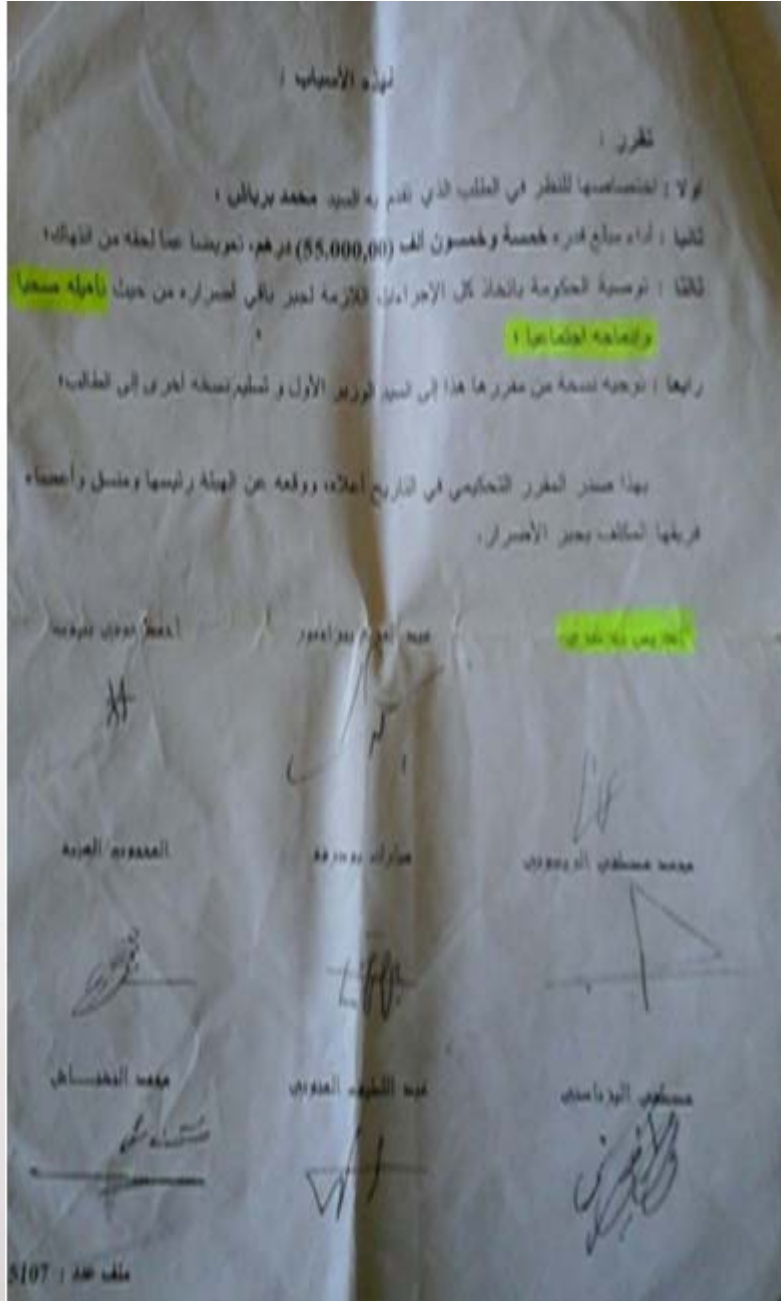 لهذه الأسباب :
تقرر :
أولا : اختصاصها للنظر في الطلب الذي تقدم به السيد محمد بريالي ؛
ثانيا : أداء مبلغ قدره خمسة وخمسون ألف (55.000,00) درهم، تعويضا عما لحقه من انتهاك؛
ثالثا : توصية الحكومة باتخاذ كل الإجراءات اللازمة لجبر باقي أضراره من حيث تأهيله صحيا
وإدماجه اجتماعيا ؛
رابعا : توجيه نسخة من مقررها هذا إلى السيد الوزير الأول و تسليم نسخة أخرى إلى الطالب؛
بهذا صدر المقرر التحكيمي في التاريخ أعلاه، ووقعه عن الهيئة رئيسها ومنسق وأعضاء
فريقها المكلف بجبر الأضرار.
إدريس بنزكري
أحمد شوقي بنيوب
محمد مصطفى الريسوني مبارك بودرقة المحجوب الهيبة
مصطفى اليزناسني عبد اللطيف المنوني محمد النشناش
ملف عدد : 5107